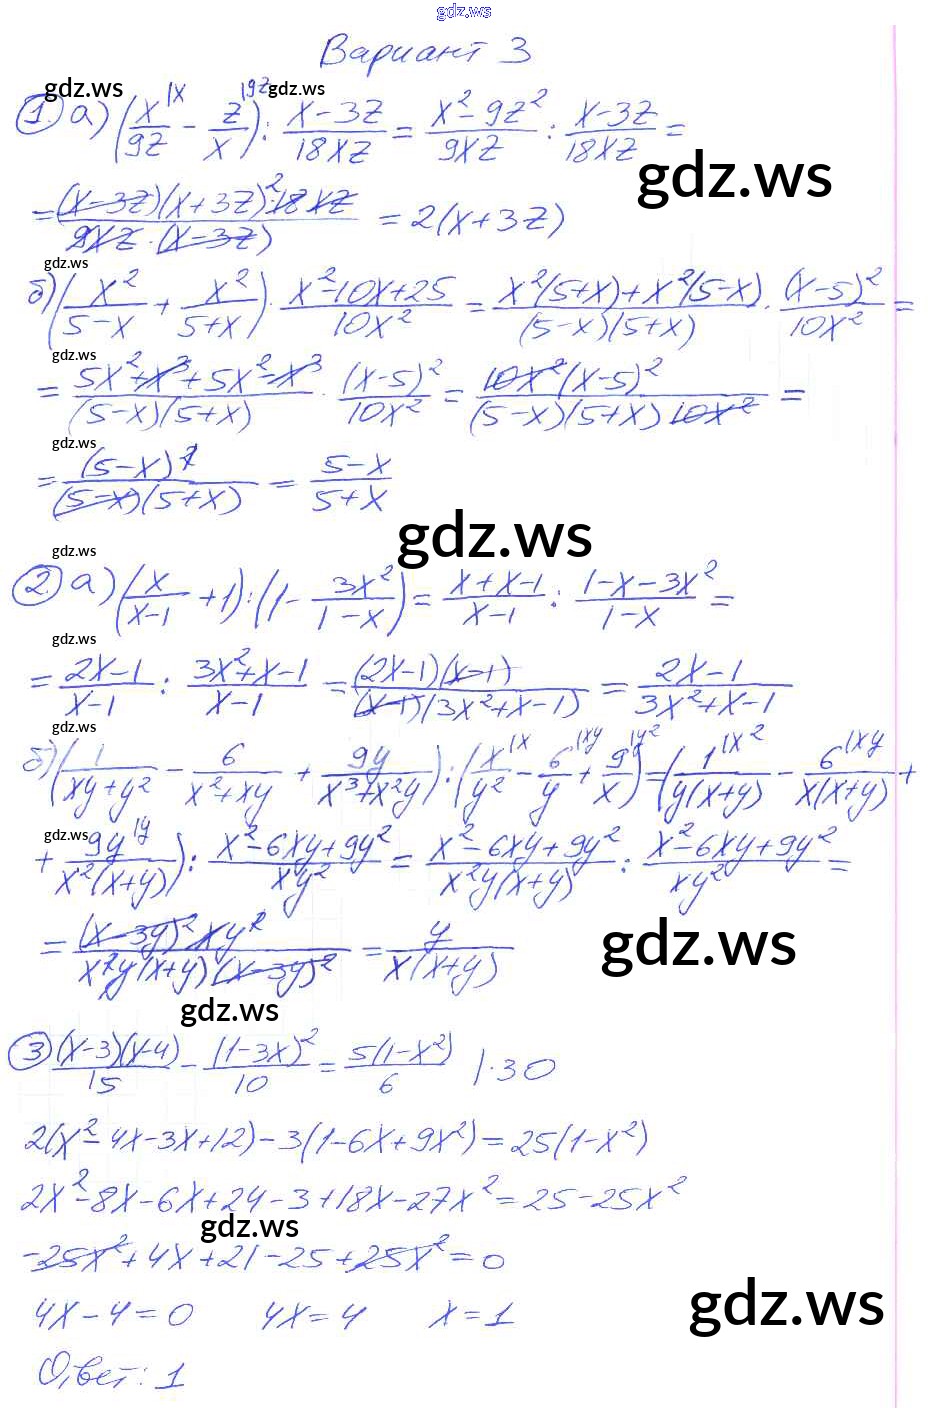 gdz.ws
Вариант 3
gdz.ws gdz.ws
1. а) (x/9z |x - z/x |9z) : (x-3z)/(18xz) = (x²-9z²)/(9xz) : (x-3z)/(18xz) =
gdz.ws
= ((x-3z)(x+3z)·²18xz)/(9xz·(x-3z)) = 2(x+3z)
gdz.ws
б) (x²/(5-x) + x²/(5+x)) · (x²-10x+25)/(10x²) = (x²(5+x)+x²(5-x))/((5-x)(5+x)) · (x-5)²/(10x²) =
gdz.ws
= (5x²+x³+5x²-x³)/((5-x)(5+x)) · (x-5)²/(10x²) = (10x²(x-5)²)/((5-x)(5+x)10x²) =
gdz.ws
= (5-x)²/((5-x)(5+x)) = (5-x)/(5+x)
gdz.ws
gdz.ws
2. а) (x/(x-1) + 1) : (1 - 3x²/(1-x)) = (x+x-1)/(x-1) : (1-x-3x²)/(1-x) =
gdz.ws
= (2x-1)/(x-1) : (3x²+x-1)/(x-1) = ((2x-1)(x-1))/((x-1)(3x²+x-1)) = (2x-1)/(3x²+x-1)
gdz.ws
б) (1/(xy+y²) - 6/(x²+xy) + 9y/(x³+x²y)) : (x/y² |x - 6/y |xy + 9/x |y²) = (1/(y(x+y)) |x² - 6/(x(x+y)) |xy +
gdz.ws
+ 9y/(x²(x+y)) |y) : (x²-6xy+9y²)/(xy²) = (x²-6xy+9y²)/(x²y(x+y)) : (x²-6xy+9y²)/(xy²) =
= ((x-3y)²xy²)/(x²y(x+y)(x-3y)²) = y/(x(x+y))
gdz.ws
gdz.ws
3 ((x-3)(x-4))/15 - (1-3x)²/10 = 5(1-x²)/6 |·30
2(x²-4x-3x+12)-3(1-6x+9x²)=25(1-x²)
2x²-8x-6x+24-3+18x-27x²=25-25x²
gdz.ws
-25x²+4x+21-25+25x²=0
4x-4=0 4x=4 x=1
gdz.ws
Ответ: 1